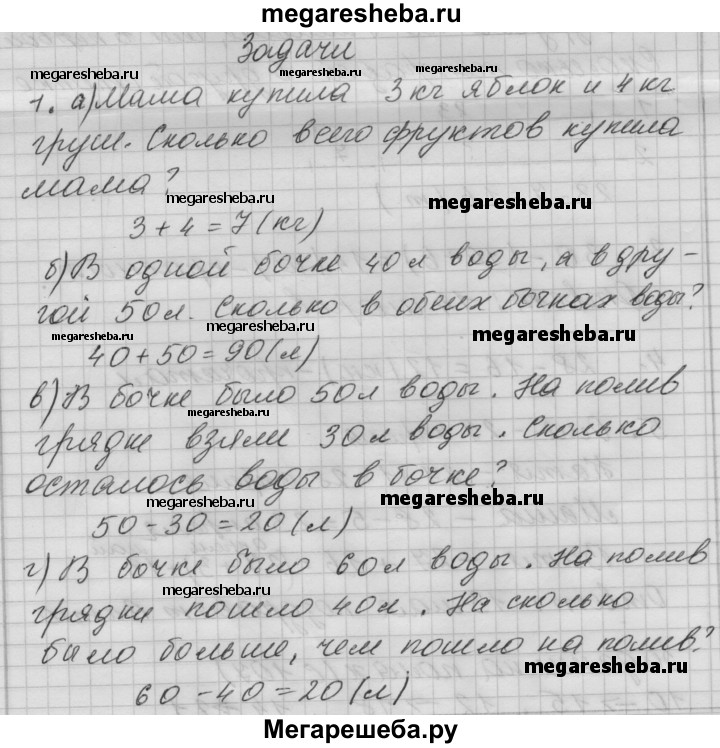 megaresheba.ru
Задачи
megaresheba.ru
megaresheba.ru
1. а) Мама купила 3 кг яблок и 4 кг
груш. Сколько всего фруктов купила
мама?
megaresheba.ru
megaresheba.ru
3 + 4 = 7 (кг)
б) В одной бочке 40 л воды, а в дру-
гой 50 л. Сколько в обеих бочках воды?
megaresheba.ru
megaresheba.ru
megaresheba.ru
40 + 50 = 90 (л)
в) В бочке было 50 л воды. На полив
megaresheba.ru
грядки взяли 30 л воды. Сколько
осталось воды в бочке?
megaresheba.ru
megaresheba.ru
50 - 30 = 20 (л)
г) В бочке было 60 л воды. На полив
megaresheba.ru
грядки пошло 40 л. На сколько
было больше, чем пошло на полив?
megaresheba.ru
60 - 40 = 20 (л)
Мегарешеба.ру